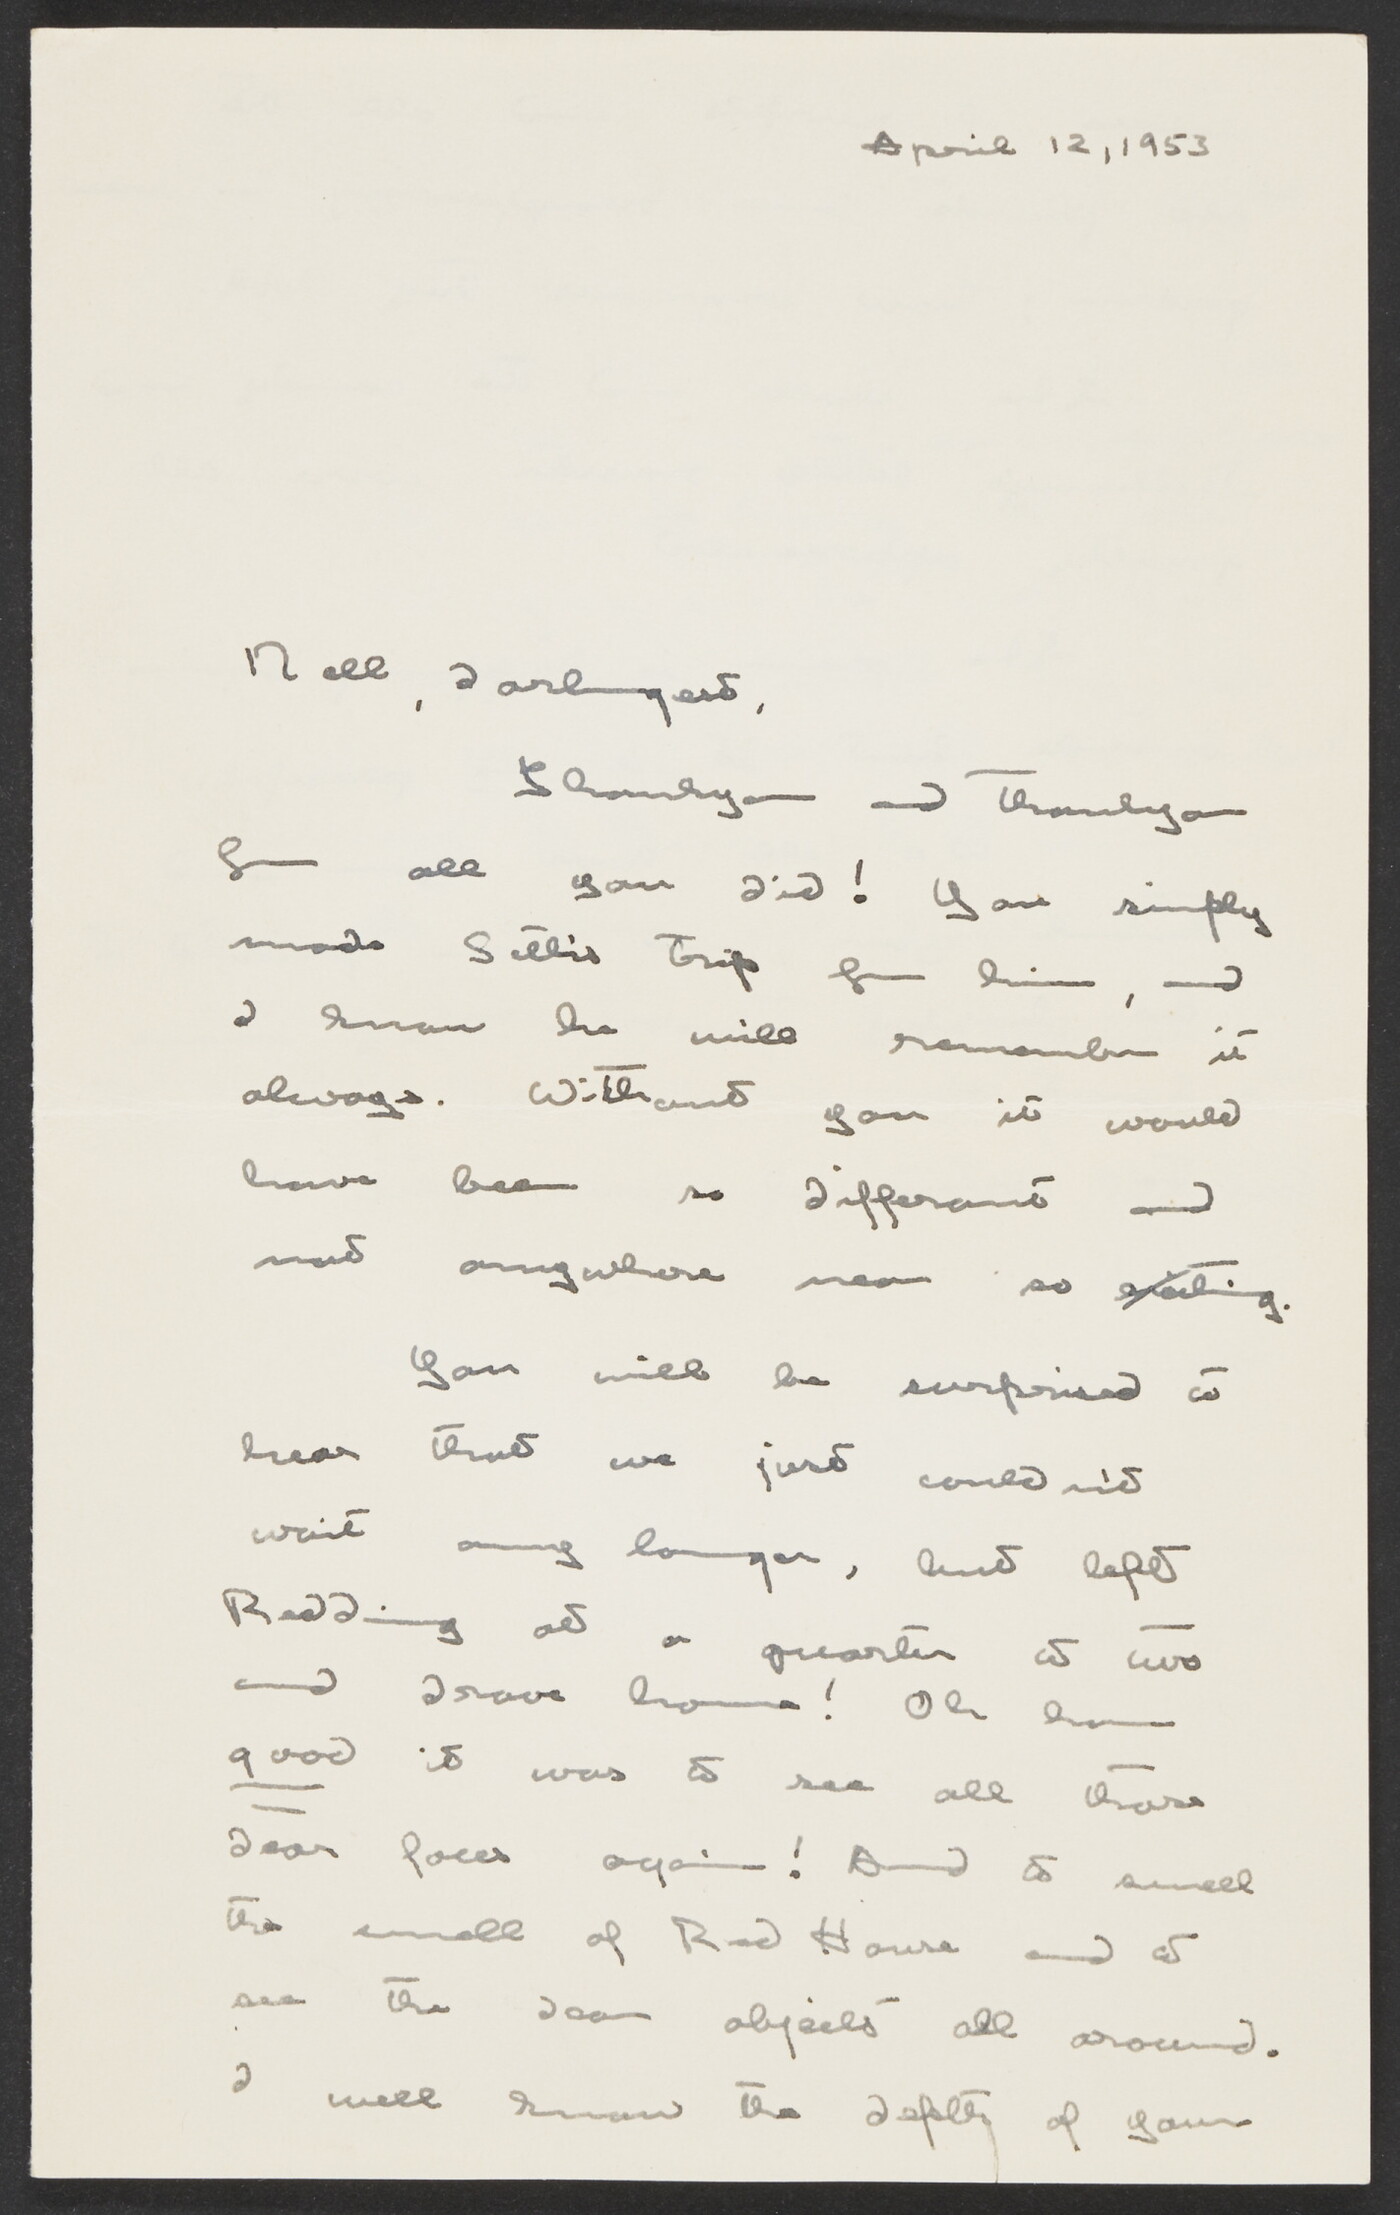 April 12, 1953
Nell, darlingest,
Thankyou and thankyou
for all you did! You simply
made trip for him, and
I know he will remember it
always. Without you it would
have been so different and
not anywhere near so exciting.
You will be surprised to
hear that we just couldn't
wait any longer, but left
Redding at a quarter to two
and drove home! Oh how
good it was to see all those
dear faces again! And to smell
the smell of Red House and to
see the dear objects all around.
I well know the depth of your